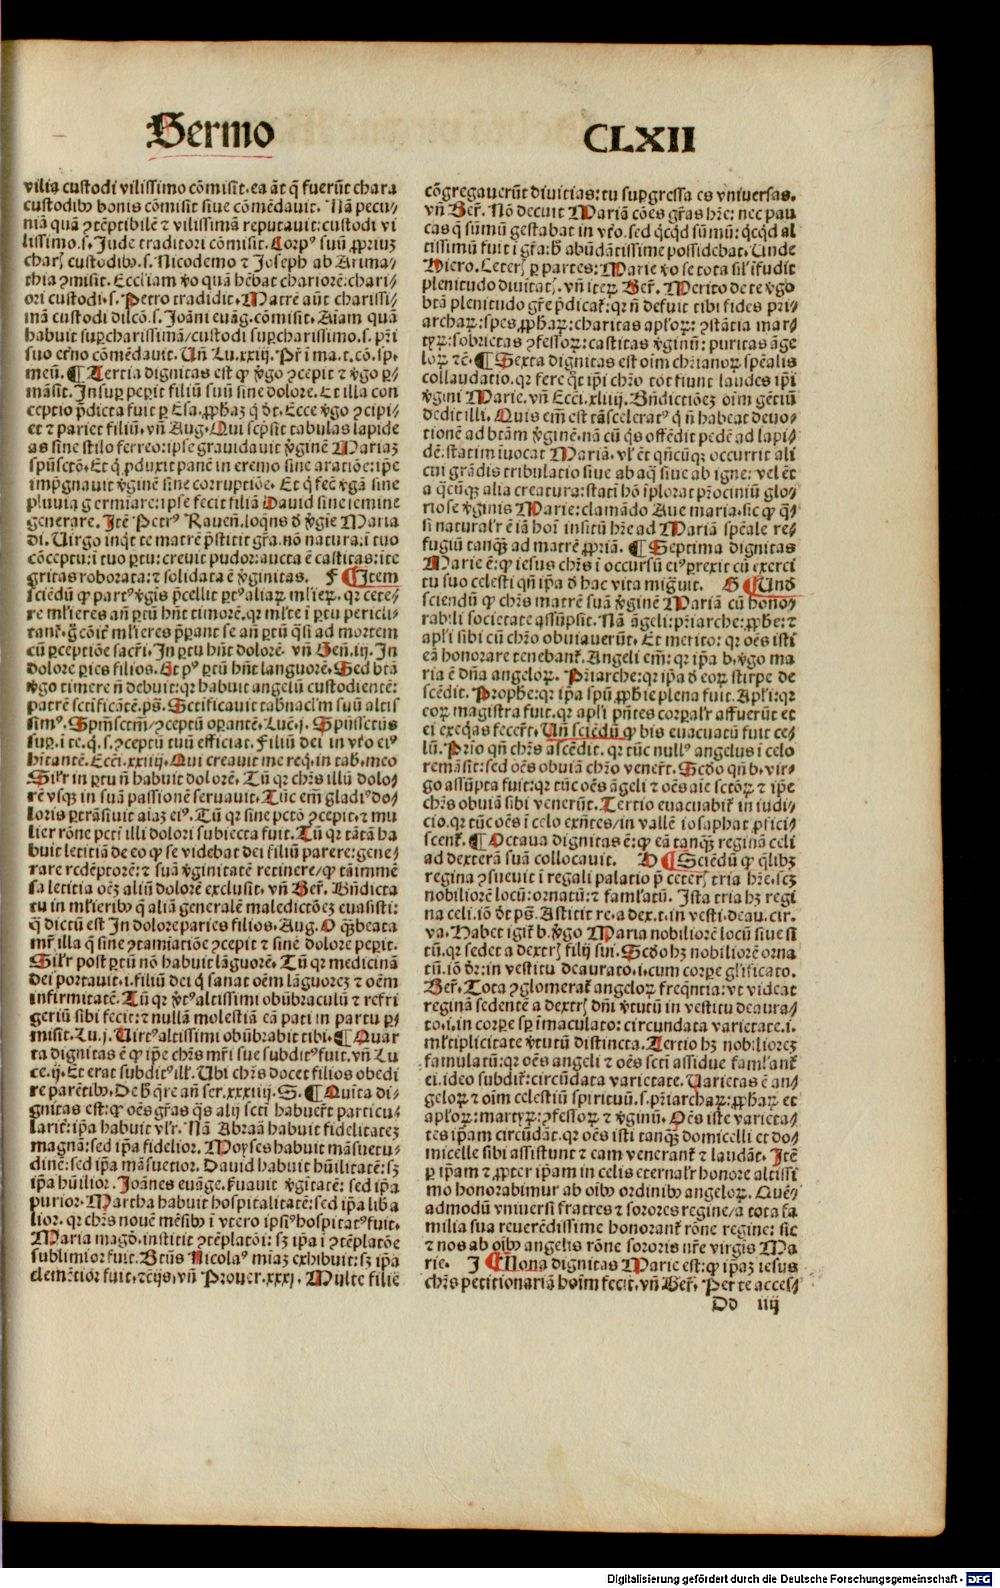 Sermo
CLXII
vilia custodi vilissimo cōmisit. ea āt q̄ fuerūt chara
custodibꝰ bonis cōmisit siue cōmēdauit. Nā pecu-
niā quā ꝯtēptibilē ⁊ vilissimā reputauit: custodi vi
lissimo .s. Jude traditori cōmisit. Corpꝰ suū ꝓpriuꝫ
charis custodibꝰ .s. Nicodemo ⁊ Joseph ab Arima-
thia ꝯmisit. Eccliam v̄o quā hēbat chariorē: chari-
ori custodi .s. Petro tradidit. Matrē aūt charissi-
mā custodi dilcō .s. Joāni euāg. cōmisit. Aīam quā
habuit suꝑcharissimā/custodi suꝑcharissimo .s. pr̄i
suo et̄no cōmēdauit. Un̄ Lu. xxiij. Pr̄ ī ma. t. cō. sp.
meū. ¶ Tertia dignitas est ꝙ v̄go ꝯcepit ⁊ v̄go ꝑ-
māsit. Insuꝑ peꝑit filiū suū sine dolore. Et illa con
ceptio p̄dicta fuit ꝑ Esa. ꝓphaꝫ q̄ dt. Ecce v̄go ꝯcipi-
et ⁊ pariet filiū. vn̄ Aug. Qui scp̄sit tabulas lapide
as sine stilo ferreo: ip̄se grauidauit v̄ginē Mariaꝫ
spūsctō. Et q̄ ꝓduxit panē in eremo sine aratiōe: ip̄e
imp̄gnauit v̄ginē sine corruptiōe. Et q̄ fec̄ v̄gā sine
pluuia germiare: ipse fecit filiā Dauid sine semine
generare. Itē Petrꝰ Rauen̄. loqn̄s d̄ v̄gīe Maria
di. Uirgo inq̄t te matrē p̄stitit gr̄a. nō natura: ī tuo
cōceptu: ī tuo ꝑtu: creuit pudor: aucta ē castitas: īte
gritas roborata: ⁊ solidata ē v̄ginitas. F ¶ Item
sciēdū ꝙ partꝰ v̄gis p̄cellit ꝑtꝰ aliaꝝ ml̄ieꝝ. qꝛ cete-
re ml̄ieres an̄ ꝑtū hn̄t timorē. qꝛ ml̄te ī ꝑtu pericli-
cū ꝑceptiōe sacr̄i. In ꝑtu hn̄t dolorē. vn̄ Gen̄. iij. In
dolore ꝑies filios. Et pꝰ ꝑtū hn̄t languorē. Sed btā
v̄go timere n̄ debuit: qꝛ habuit angelū custodientē:
patrē sctificātē. ps̄. Sctificauit tabnacl̄m suū altis
simꝰ. Spm̄sctm̄/ꝯceptū oꝑantē. Luc̄. j. Spūssctus
suꝑ. ī te. q̄. s. ꝯceptū tuū efficiat. Filiū dei in vt̄o eiꝰ
hītantē. Ecci. xxiiij. Qui creauit me req̄. in tab. meo
Silr̄ in ꝑtu n̄ habuit dolorē. Tū qꝛ chr̄s illū dolo-
rē vsqꝫ in suā passionē seruauit. Tūc em̄ gladiꝰ do-
loris ꝑtrāsiuit aīaꝫ eiꝰ. Tū qꝛ sine pctō ꝯcepit. ⁊ mu
lier rōne pcti illi dolori subiecta fuit. Tū qꝛ tātā ha
buit letitiā de eo ꝙ se videbat dei filiū parere: gene-
rare redēptorē: ⁊ suā v̄ginitatē retinere/ꝙ tā immē
sa letitia oēꝫ aliū dolorē exclusit. vn̄ Ber̄. Bn̄dicta
tu in ml̄ieribꝰ q̄ aliā generalē maledictōeꝫ euasisti:
q̄ dictū est In dolore paries filios. Aug. O q̄ꝫ beata
mr̄ illa q̄ sine ꝯtamiatiōe ꝯcepit ⁊ sine dolore peꝑit.
Silr̄ post ꝑtū nō habuit lāguorē. Tū qꝛ medicinā
dei portauit. i. filiū dei q̄ sanat oēm lāguoreꝫ ⁊ oēm
infirmitatē. Tū qꝛ v̄tꝰ altissimi obūbraculū ⁊ refri
geriū sibi fecit: ⁊ nullā molestiā eā pati in partu ꝑ-
misit. Lu. j. Uirtꝰ altissimi obūbrabit tibi. ¶ Quar
ta dignitas ē ꝙ ip̄e chr̄s mr̄i sue subditꝰ fuit. vn̄ Lu
ce. ij. Et erat subditꝰ ill̄. Ubi chr̄s docet filios obedi
re parētibꝰ. De h̄ q̄re an̄ ser. xxxiij. S. ¶ Quīta di-
gnitas est: ꝙ oēs gr̄as q̄s alij scti habuer̄t particu-
larit̄: ip̄a habuit vl̄r. Nā Abraā habuit fidelitateꝫ
magnā: sed ip̄a fidelior. Moyses habuit māsuetu-
dinē: sed ip̄a māsuetior. Dauid habuit hūilitatē: sꝫ
ip̄a hūilior. Joānes euāge. ẜuauit v̄gītatē: sed ip̄a
purior. Martha habuit hospitalitatē: sed ip̄a liba
lior. qꝛ chr̄s nouē mēsibꝰ ī vtero ipsiꝰ hospitatꝰ fuit.
Maria magd̄. institit ꝯtēplatōi: sꝫ ip̄a ī ꝯtēplatōe
sublimior fuit. Btūs Nicolaꝰ miaꝫ exhibuit: sꝫ ip̄a
clemētior fuit. ⁊ c̄ijs. vn̄ Prouer. xxxj. Multe filie
cōgregauerūt diuitias: tu suꝑgressa es vniuersas.
vn̄ Ber̄. Nō decuit Mariā cōes gr̄as hr̄e: nec pau
cas q̄ sūmū gestabat in vt̄o. sed q̄cqd sūmū: q̄cqd al
tissimū fuit ī gr̄a: h̄ abūdātissime possidebat. Unde
Hiero. Ceteris ꝑ partes: Marie v̄o se tota sil̄ īfudit
plenitudo diuitatis. vn̄ iteꝝ Ber̄. Merito de te v̄go
btā plenitudo gr̄e p̄dicat̄: qꝛ n̄ defuit tibi fides pri-
archaꝝ: spes ꝓphaꝝ: charitas apl̄oꝝ: ꝯstātia mar-
tyꝝ: sobrietas ꝯfessoꝝ: castitas v̄ginū: puritas āge
loꝝ ⁊c̄. ¶ Sexta dignitas est oīm chr̄ianoꝝ sp̄ealis
collaudatio. qꝛ fere q̄t ip̄i chr̄o tot fiunt laudes ip̄i
v̄gini Marie. vn̄ Ecci. xliiij. Bn̄dictiōeꝫ oīm gētiū
dedit illi. Quis em̄ est tā sceleratꝰ q̄ n̄ habeat deuo-
tionē ad btām v̄ginē. nā cū q̄s offēdit pedē ad lapi-
dē: statim īuocat Mariā. vl̄ et̄ qn̄cūqꝫ occurrit ali
cui grādis tribulatio siue ab aq̄ siue ab igne: vel et̄
a q̄cūqꝫ alia creatura: statī hō īplorat pr̄ociniū glo-
riose v̄ginis Marie: clamādo Aue maria. sic ꝙ q̄-
si naturalr̄ ē iā hoī insitū hr̄e ad Mariā sp̄eale re-
fugiū tanqꝫ ad matrē ꝓpriā. ¶ Septima dignitas
Marie ē: ꝙ iesus chr̄s ī occursū eiꝰ ꝑrexit cū exerci
tu suo celesti qn̄ ip̄a d̄ hac vita migͣuit. G ¶ Und̄
sciendū ꝙ chr̄s matrē suā v̄ginē Mariā cū hono-
rabili societate assūpsit. Nā āgeli: pr̄iarche: ꝓphe: ⁊
apl̄i sibi cū chr̄o obuiauerūt. Et merito: qꝛ oēs isti
eā honorare tenebant̄. Angeli em̄: qꝛ ip̄a b. v̄go ma
ria ē dn̄a angeloꝝ. Pr̄iarche: qꝛ ip̄a d̄ eoꝝ stirpe de
scēdit. Prophe: qꝛ ip̄a spū ꝓphīe plena fuit. Apl̄i: qꝛ
eoꝝ magistra fuit. qꝛ apl̄i pn̄tes corꝑalr̄ affuerūt et
ei exeq̄as fecer̄t. Un̄ sciēdū ꝙ his euacuatū fuit ce-
lū. Prīo qn̄ chr̄s ascēdit. qꝛ tūc nullꝰ angelus ī celo
remāsit: sed oēs obuiā chr̄o vener̄t. Scd̄o qn̄ b. vir-
go assūpta fuit: qꝛ tūc oēs āgeli ⁊ oēs aīe sctōꝝ ⁊ ip̄e
chr̄s obuiā sibi venerūt. Tertio euacuabit̄ in iudi-
cio. qꝛ tūc oēs ī celo exn̄tes/in vallē iosaphat ꝓfici-
scent̄. ¶ Octaua dignitas ē: ꝙ eā tanqꝫ reginā celi
ad dexterā suā collocauit. H ¶ Sciēdū ꝙ q̄libꝫ
regina ꝯsueuit ī regali palatio p̄ ceteris tria hr̄e. scꝫ
nobiliorē locū: ornatū: ⁊ famlatū. Ista tria hꝫ regi
na celi. iō dt ps̄. Astitit re. a dex. t. in vesti. deau. cir.
va. Habet igit̄ b. v̄go Maria nobiliorē locū siue si
tū. qꝛ sedet a dextris filij sui. Scd̄o hꝫ nobiliorē orna
tū. iō dr̄: in vestitu deaurato. i. cum corpe gl̄ificato.
Ber̄. Tota ꝯglomerat̄ angeloꝝ freqn̄tia: vt videat
reginā sedentē a dextris dn̄i v̄tutū in vestitu deaura-
to. i. in corꝑe sꝑ īmaculato: circundata varietate. i.
ml̄tiplicitate v̄tutū distincta. Tertio hꝫ nobilioreꝫ
famulatū: qꝛ oēs angeli ⁊ oēs scti assidue famlant̄
ei. ideo subdit̄: circūdata varietate. Uarietas ē an-
geloꝝ ⁊ oīm celestiū spirituū. s. pr̄iarchaꝝ: ꝓphaꝝ et
apl̄oꝝ: martyꝝ: ꝯfessoꝝ ⁊ v̄ginū. Oēs iste varieta-
tes ip̄am circūdāt. qꝛ oēs isti tanqꝫ domicelli et do-
micelle sibi assistunt ⁊ eam venerant̄ ⁊ laudāt. Itē
ꝑ ip̄am ⁊ ꝓpter ip̄am in celis eternalr̄ honore altissi
mo honorabimur ab oībꝰ ordinibꝰ angeloꝝ. Quē-
admodū vniuersi fratres ⁊ sorores regine/a tota fa
milia sua reuerēdissime honorant̄ rōne regine: sic
⁊ nos ab oībꝰ angelis rōne sororis nr̄e virgīs Ma
rie. J ¶ Nona dignitas Marie est: ꝙ ip̄aꝫ iesus
chr̄s petitionariā hoīm fecit. vn̄ Ber̄. Per te acces-
Dd iiij
Digitalisierung gefördert durch die Deutsche Forschungsgemeinschaft - DFG